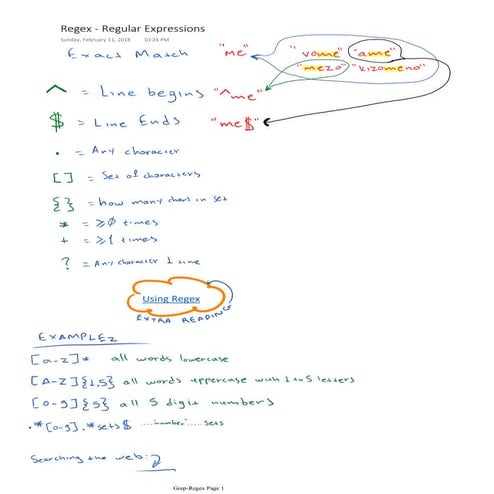 Regex - Regular Expressions
Sunday, February 11, 2018 10:24 PM
Exact Match "me" "vome" "ame"
"mezo" "kizomeno"
^ = Line begins "^me"
$ = Line Ends "me$"
. = Any character
[ ] = Set of characters
{ } = how many chars in set
* = ≥0 times
+ = ≥1 times
? = Any character 1 time
Using Regex
EXTRA READING
EXAMPLEZ
[a-z]* all words lowercase
[A-Z]{1,5} all words uppercase with 1 to 5 letters
[0-9]{5} all 5 digit numbers
.*[0-9].*sets$ ....number....sets
Searching the web:
Grep-Regex Page 1